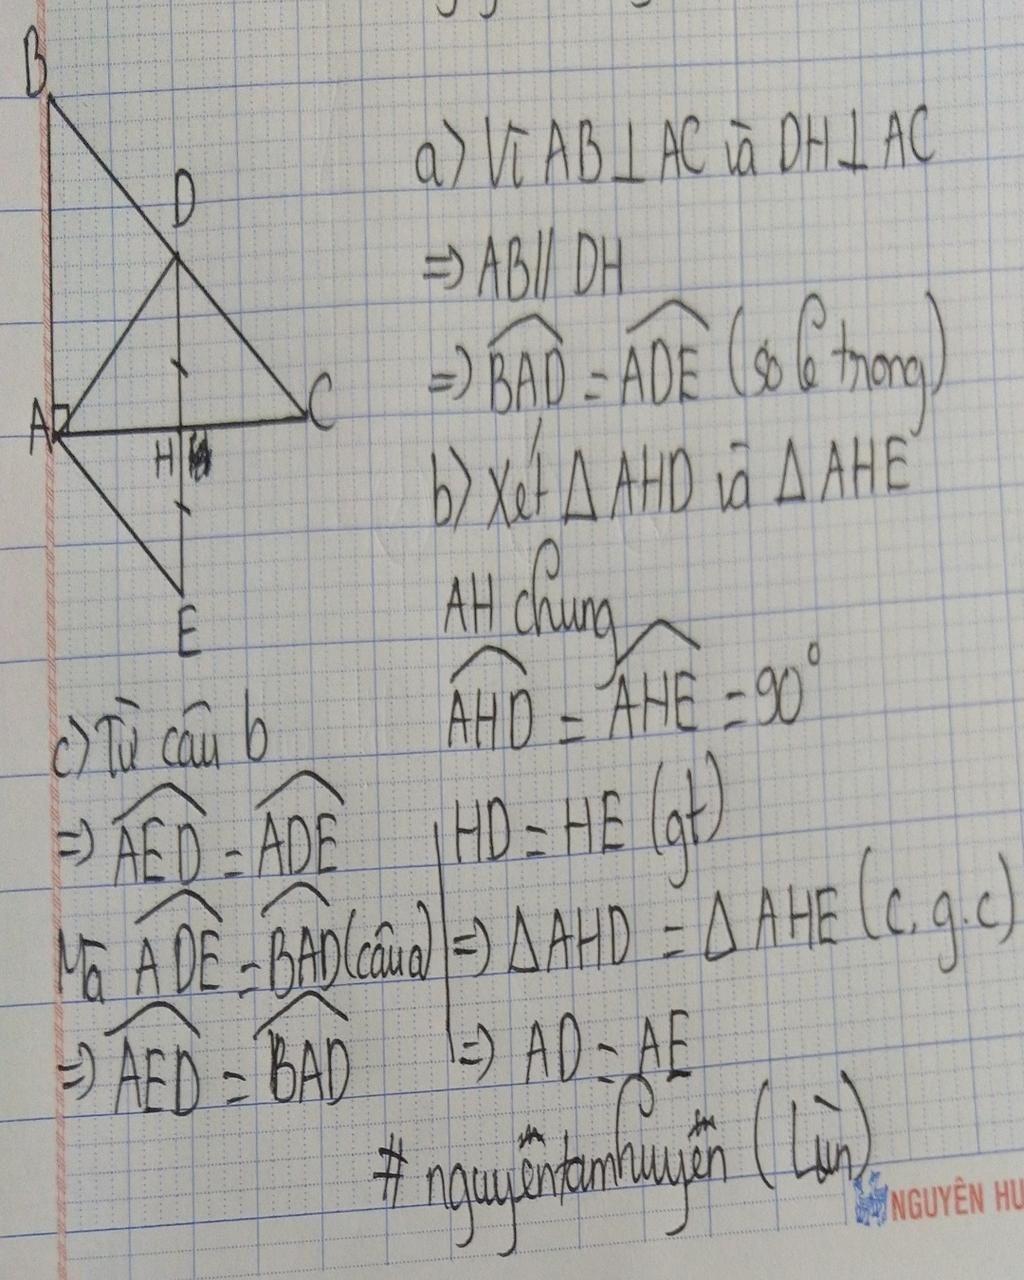 B
D
A
C
H
E
a) Vì AB ⊥ AC và DH ⊥ AC
=> AB // DH
=> \widehat{BAD} = \widehat{ADE} (so le trong)
b) Xét Δ AHD và Δ AHE
AH chung
\widehat{AHD} = \widehat{AHE} = 90°
HD = HE (gt)
=> Δ AHD = Δ AHE (c.g.c)
=> AD = AE
c) Từ câu b
=> \widehat{AED} = \widehat{ADE}
Mà \widehat{ADE} = \widehat{BAD} (câu a)
=> \widehat{AED} = \widehat{BAD}
# nguyễntamhuyền (Lùn)
NGUYÊN HU